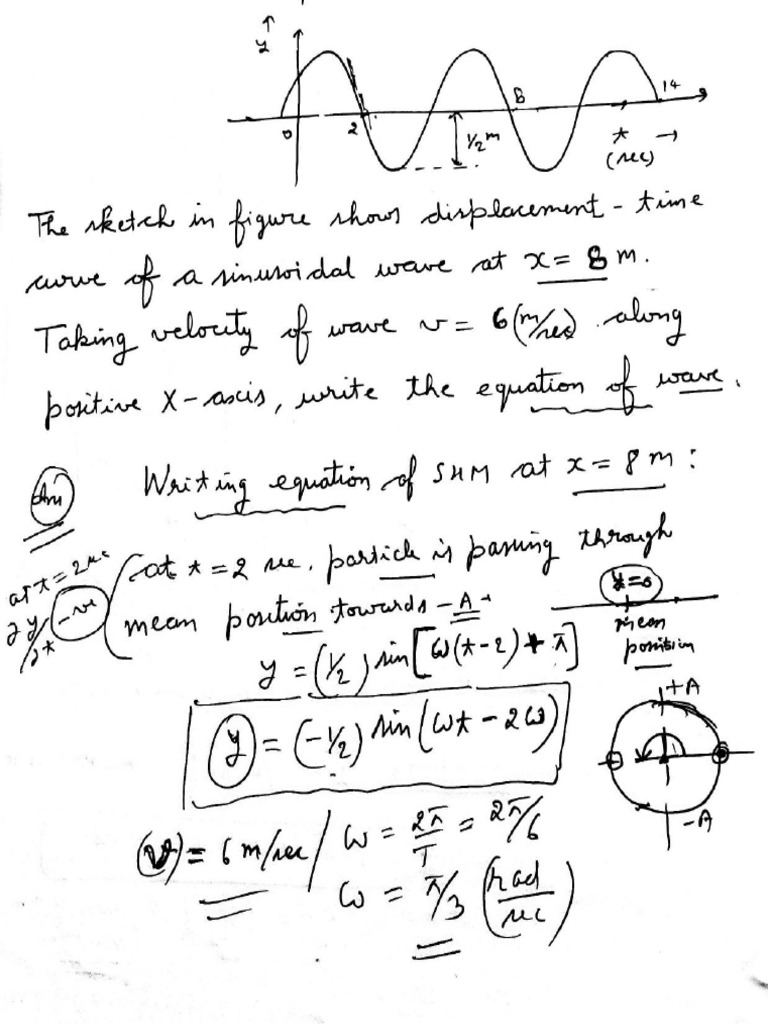 y
0
2
½ m
8
14
t →
(sec)
The sketch in figure shows displacement - time
curve of a sinusoidal wave at x = 8 m.
Taking velocity of wave v = 6 (m/sec) along
positive X-axis, write the equation of wave.
Ans
Writing equation of SHM at x = 8 m :
at t = 2 sec
∂y/∂t -ve
at t = 2 sec. particle is passing through
mean position towards -A.
y=0
mean
position
y = (½) sin [ω(t-2) + π]
y = (-½) sin (ωt - 2ω)
+A
-A
v = 6 m/sec / ω = 2π/T = 2π/6
ω = π/3 (rad/sec)